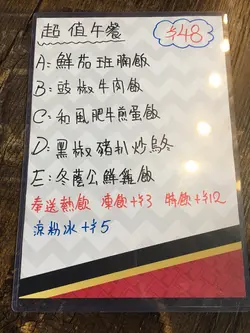 超值午餐 $48
A: 鮮茄班腩飯
B: 豉椒牛肉飯
C: 和風肥牛煎蛋飯
D: 黑椒豬扒炒烏冬
E: 冬蔭公鮮雞飯
奉送熱飲 凍飲+$3 特飲+$12
涼粉冰+$5